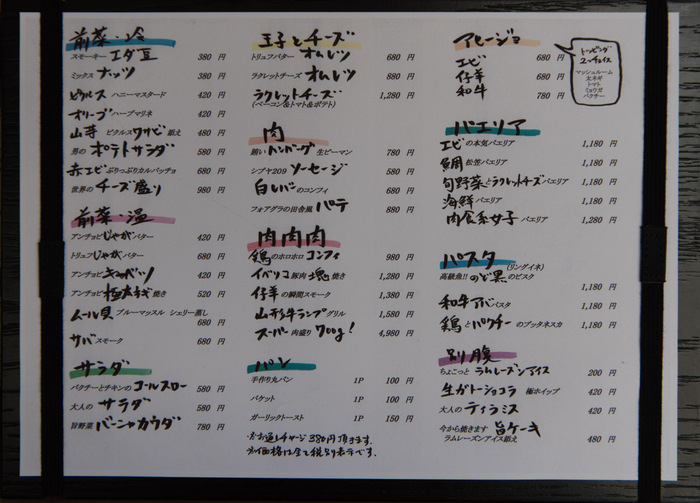 前菜・冷
スモーキー エダ豆 380 円
ミックス ナッツ 380 円
ピクルス ハニーマスタード 420 円
オリーブ ハーブマリネ 420 円
山芋 ピクルス ワサビ 添え 480 円
男の ポテトサラダ 580 円
赤エビ ぷりっぷりカルパッチョ 680 円
世界の チーズ盛り 980 円
前菜・温
アンチョビ じゃが バター 420 円
トリュフ じゃが バター 680 円
アンチョビ キャベツ 420 円
アンチョビ 焼き 520 円
ムール貝 ブルーマッスル シェリー蒸し
680 円
サバ スモーク 680 円
サラダ
パクチーとチキンの コールスロー 580 円
大人の サラダ 580 円
旨野菜 バーニャカウダ 780 円
玉子とチーズ
トリュフバター オムレツ 680 円
ラクレットチーズ オムレツ 880 円
ラクレットチーズ 1,280 円
(ベーコン&トマト&ポテト)
肉
粗い ハンバーグ 生ピーマン 780 円
シブヤ209 ソーセージ 580 円
白レバー のコンフィ 680 円
フォアグラの田舎風 パテ 880 円
肉肉肉
鶏 のホロホロ コンフィ 980 円
イベリコ 豚肉 塊 焼き 1,280 円
仔羊 の瞬間スモーク 1,380 円
山形牛ランプ グリル 1,580 円
スーパー 肉盛り 700g! 4,980 円
パン
手作り丸パン 1P 100 円
バケット 1P 100 円
ガーリックトースト 1P 150 円
※お通しチャージ380円頂きます。
※価格は全て税別表示です。
アヒージョ
エビ 680 円
仔羊 680 円
和牛 780 円
トッピング
ユーチョイス
マッシュルーム
太ネギ
トマト
ミョウガ
パクチー
パエリア
エビ の本気パエリア 1,180 円
鯛 松笠パエリア 1,180 円
旬野菜 と ラクレットチーズ パエリア 1,180 円
海鮮 パエリア 1,180 円
肉食系女子 パエリア 1,280 円
パスタ
(リングイネ)
高級魚!! のど黒 のビスク
1,180 円
和牛アバ パスタ 1,180 円
鶏 と パクチー のプッタネスカ 1,180 円
別腹
ちょこっと ラムレーズンアイス 200 円
生ガトーショコラ 極ホイップ 420 円
大人の ティラミス 420 円
今から焼きます 旨ケーキ
ラムレーズンアイス添え 480 円